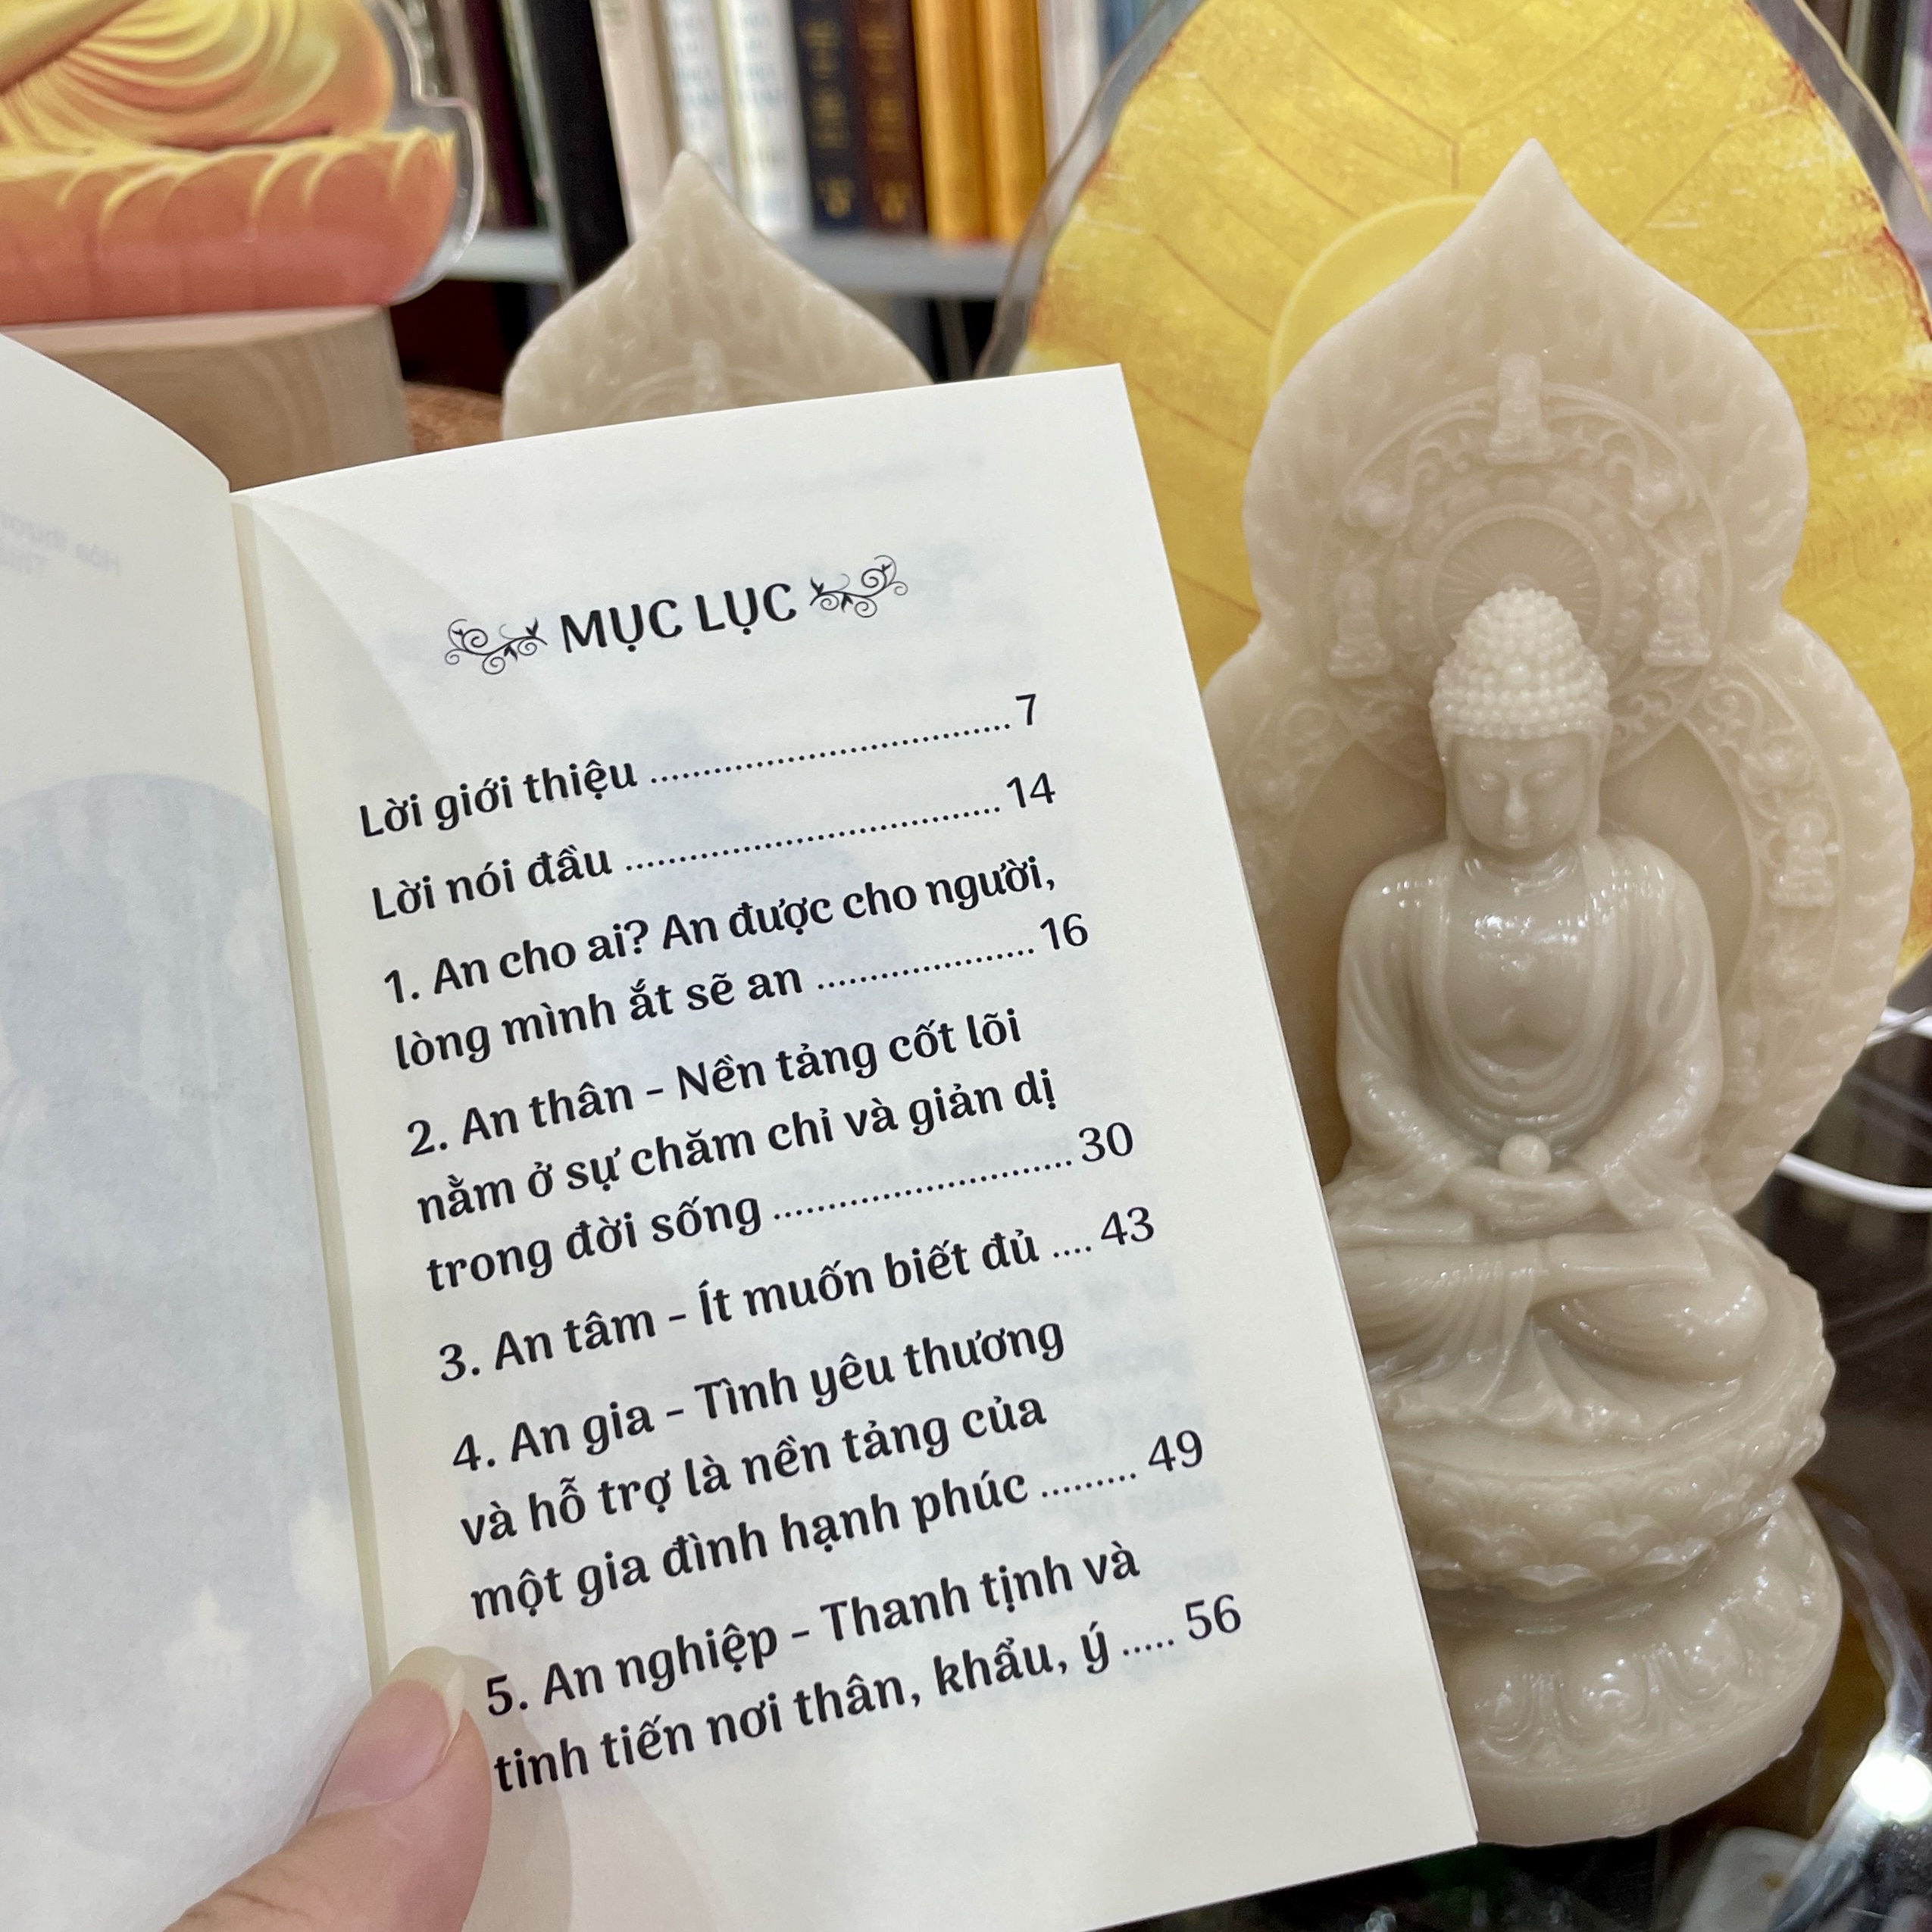 MỤC LỤC
Lời giới thiệu ........................................ 7
Lời nói đầu .......................................... 14
1. An cho ai? An được cho người,
lòng mình ắt sẽ an ........................ 16
2. An thân – Nền tảng cốt lõi
nằm ở sự chăm chỉ và giản dị
trong đời sống ................................. 30
3. An tâm – Ít muốn biết đủ .... 43
4. An gia – Tình yêu thương
và hỗ trợ là nền tảng của
một gia đình hạnh phúc ......... 49
5. An nghiệp – Thanh tịnh và
tinh tiến nơi thân, khẩu, ý ..... 56